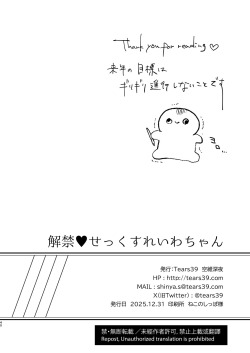 Thank you for reading ♡
来年の目標は
ギリギリ進行しないことです
ヨロ...
解禁♥せっくすれいわちゃん
発行:Tears39 空維深夜
HP : http://tears39.com
MAIL : shinya.s@tears39.com
X(旧Twitter) : @tears39
発行日 2025.12.31 印刷所 ねこのしっぽ様
禁・無断転載／未経作者許可,禁止上載或翻譯
Repost, Unauthorized translation is prohibited